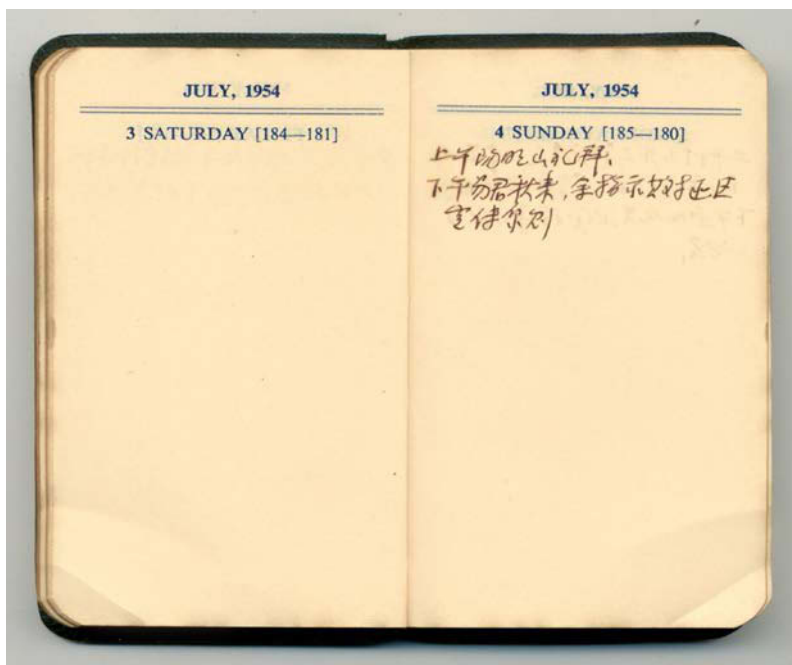 JULY, 1954
3 SATURDAY [184—181]
JULY, 1954
4 SUNDAY [185—180]
上午阳明山礼拜.
下午君来,余指示对区
宣传原则